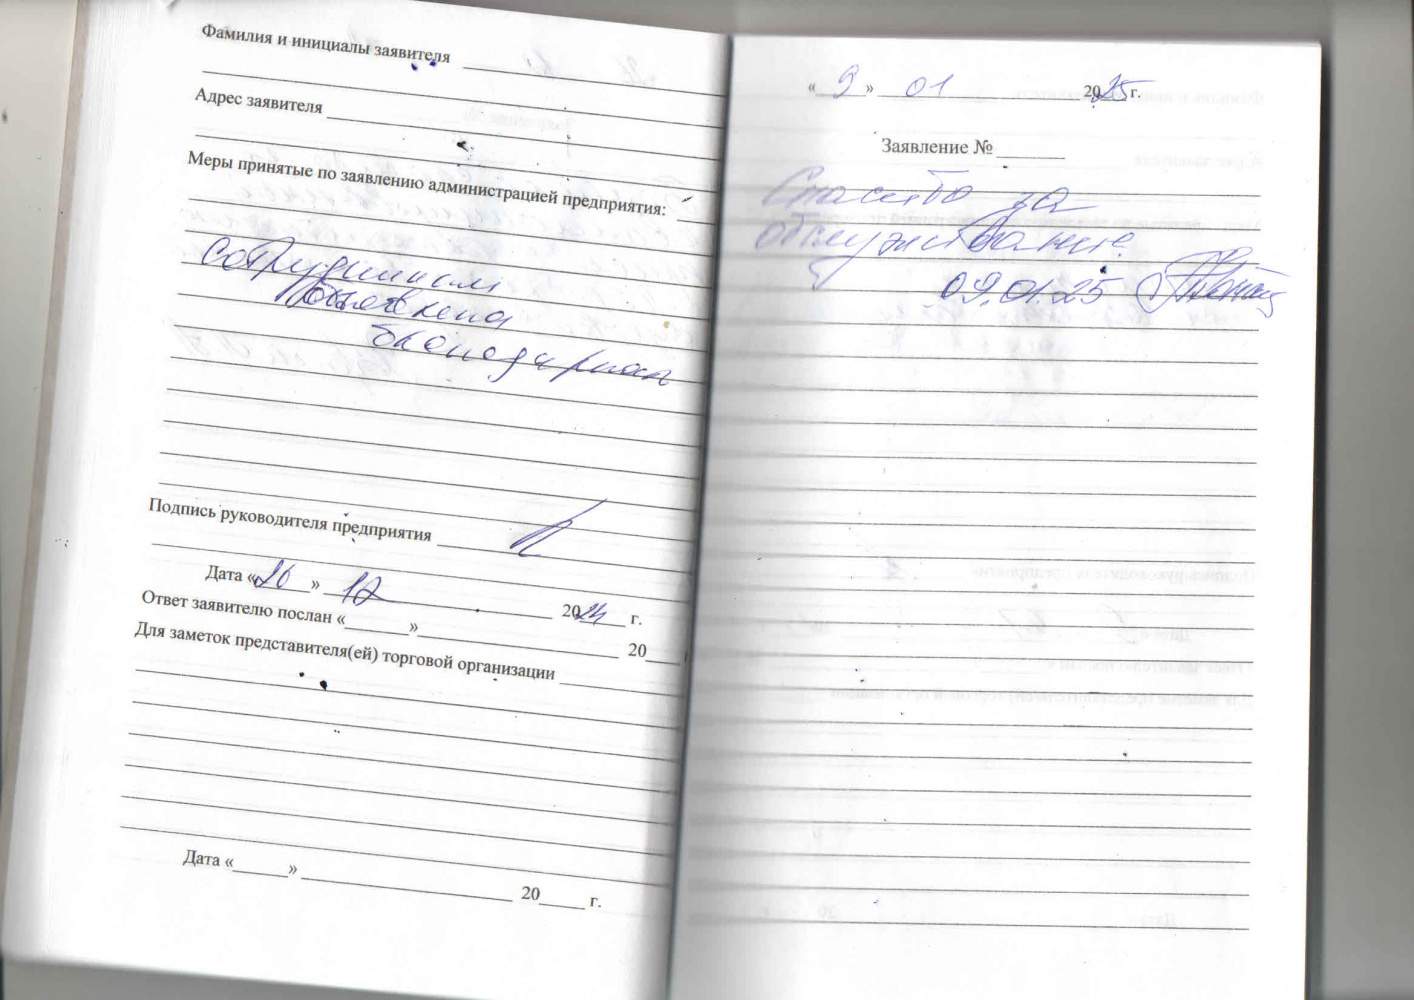 Фамилия и инициалы заявителя
Адрес заявителя
Меры принятые по заявлению администрацией предприятия:
Сотрудникам
объявлена
благодарность
Подпись руководителя предприятия
Дата «26» 12 2024 г.
Ответ заявителю послан «______»____________ 20____
Для заметок представителя(ей) торговой организации
Дата «______» ____________ 20_____ г.
«9» 01 2025 г.
Заявление № _______
Спасибо за
обслуживание.
09.01.25